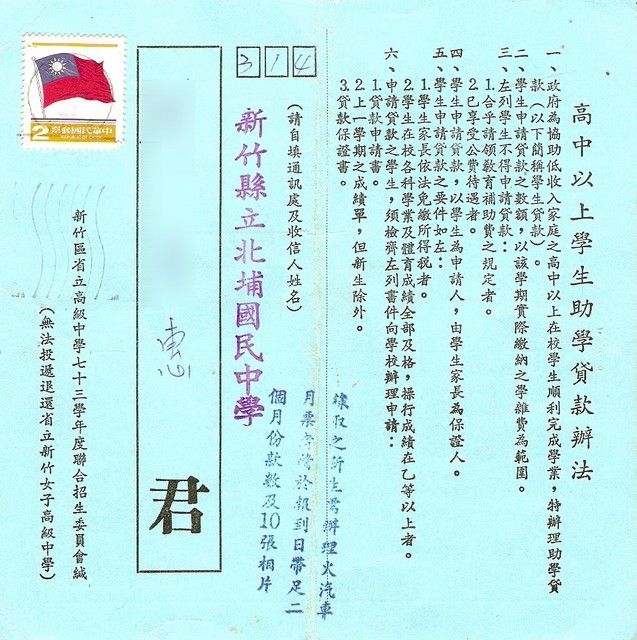 高中以上學生助學貸款辦法
一、政府為協助低收入家庭之高中以上在校學生順利完成學業，特辦理助學貸
款（以下簡稱學生貸款）。
二、學生申請貸款之數額，以該學期實際繳納之學雜費為範圍。
三、左列學生不得申請貸款：
1.合乎請領教育補助費之規定者。
2.已享受公費待遇者。
四、學生申請貸款，以學生為申請人，由學生家長為保證人。
五、學生申請貸款之要件如左：
1.學生家長依法免繳所得稅者。
2.學生在校各科學業及體育成績全部及格，操行成績在乙等以上者。
六、申請貸款之學生，須檢齊左列書件向學校辦理申請：
1.貸款申請書。
2.上一學期之成績單，但新生除外。
3.貸款保證書。
錄取之新生需辦理火汽車
月票者請於報到日帶足二
個月份款數及10張相片
（請自填通訊處及收信人姓名）
314
新竹縣立北埔國民中學
惠
君
中華民國郵票
2
新竹區省立高級中學七十三學年度聯合招生委員會緘
（無法投遞退還省立新竹女子高級中學）